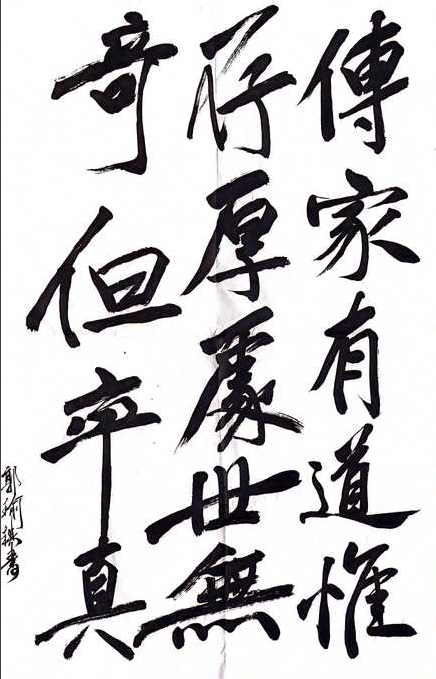 傳家有道惟
存厚處世無
奇但率真
郭書